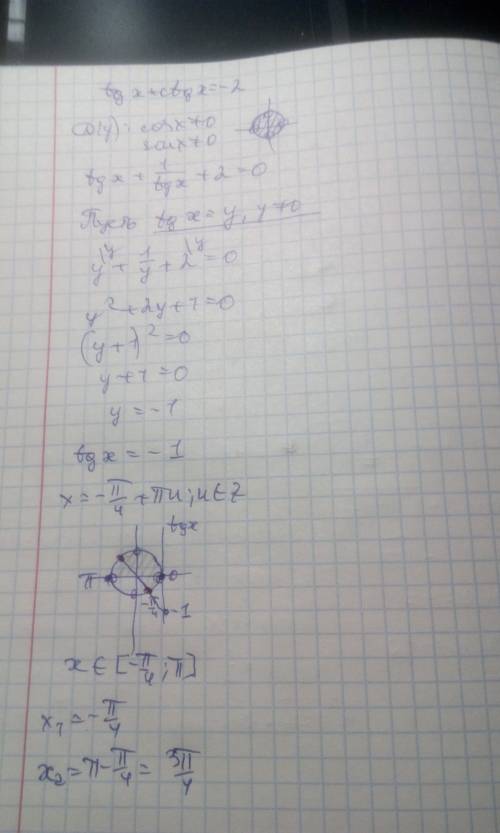 tg x + ctg x = -2
D(y): cos x ≠ 0
sin x ≠ 0
tg x + 1/tg x + 2 = 0
Пусть tg x = y, y ≠ 0
y^{\y} + 1/y + 2^{\y} = 0
y² + 2y + 1 = 0
(y + 1)² = 0
y + 1 = 0
y = -1
tg x = -1
x = -π/4 + πn; n ∈ Z
tg x
π 0
-π/4 -1
x ∈ [-π/4; π]
x₁ = -π/4
x₂ = π - π/4 = 3π/4